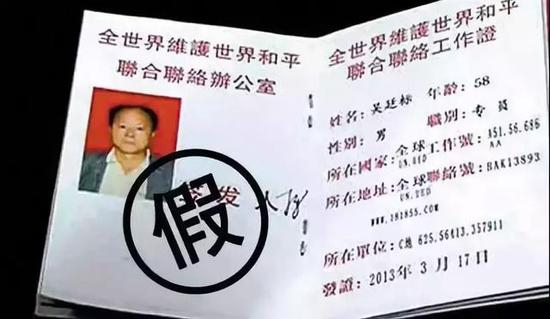 全世界維護世界和平
聯合聯絡辦公室
发
假
全世界維護世界和平
聯合聯絡工作證
姓名:吴廷标 年齡:58
性别:男 職别:专员
所在國家:全球工作號:A51.56.686
UN.UED AA
所在地址:全球聯絡號:BAK13893
UN.UED
www.181855.com
所在單位:C地 625.56413.357911
發證:2013年3月17日